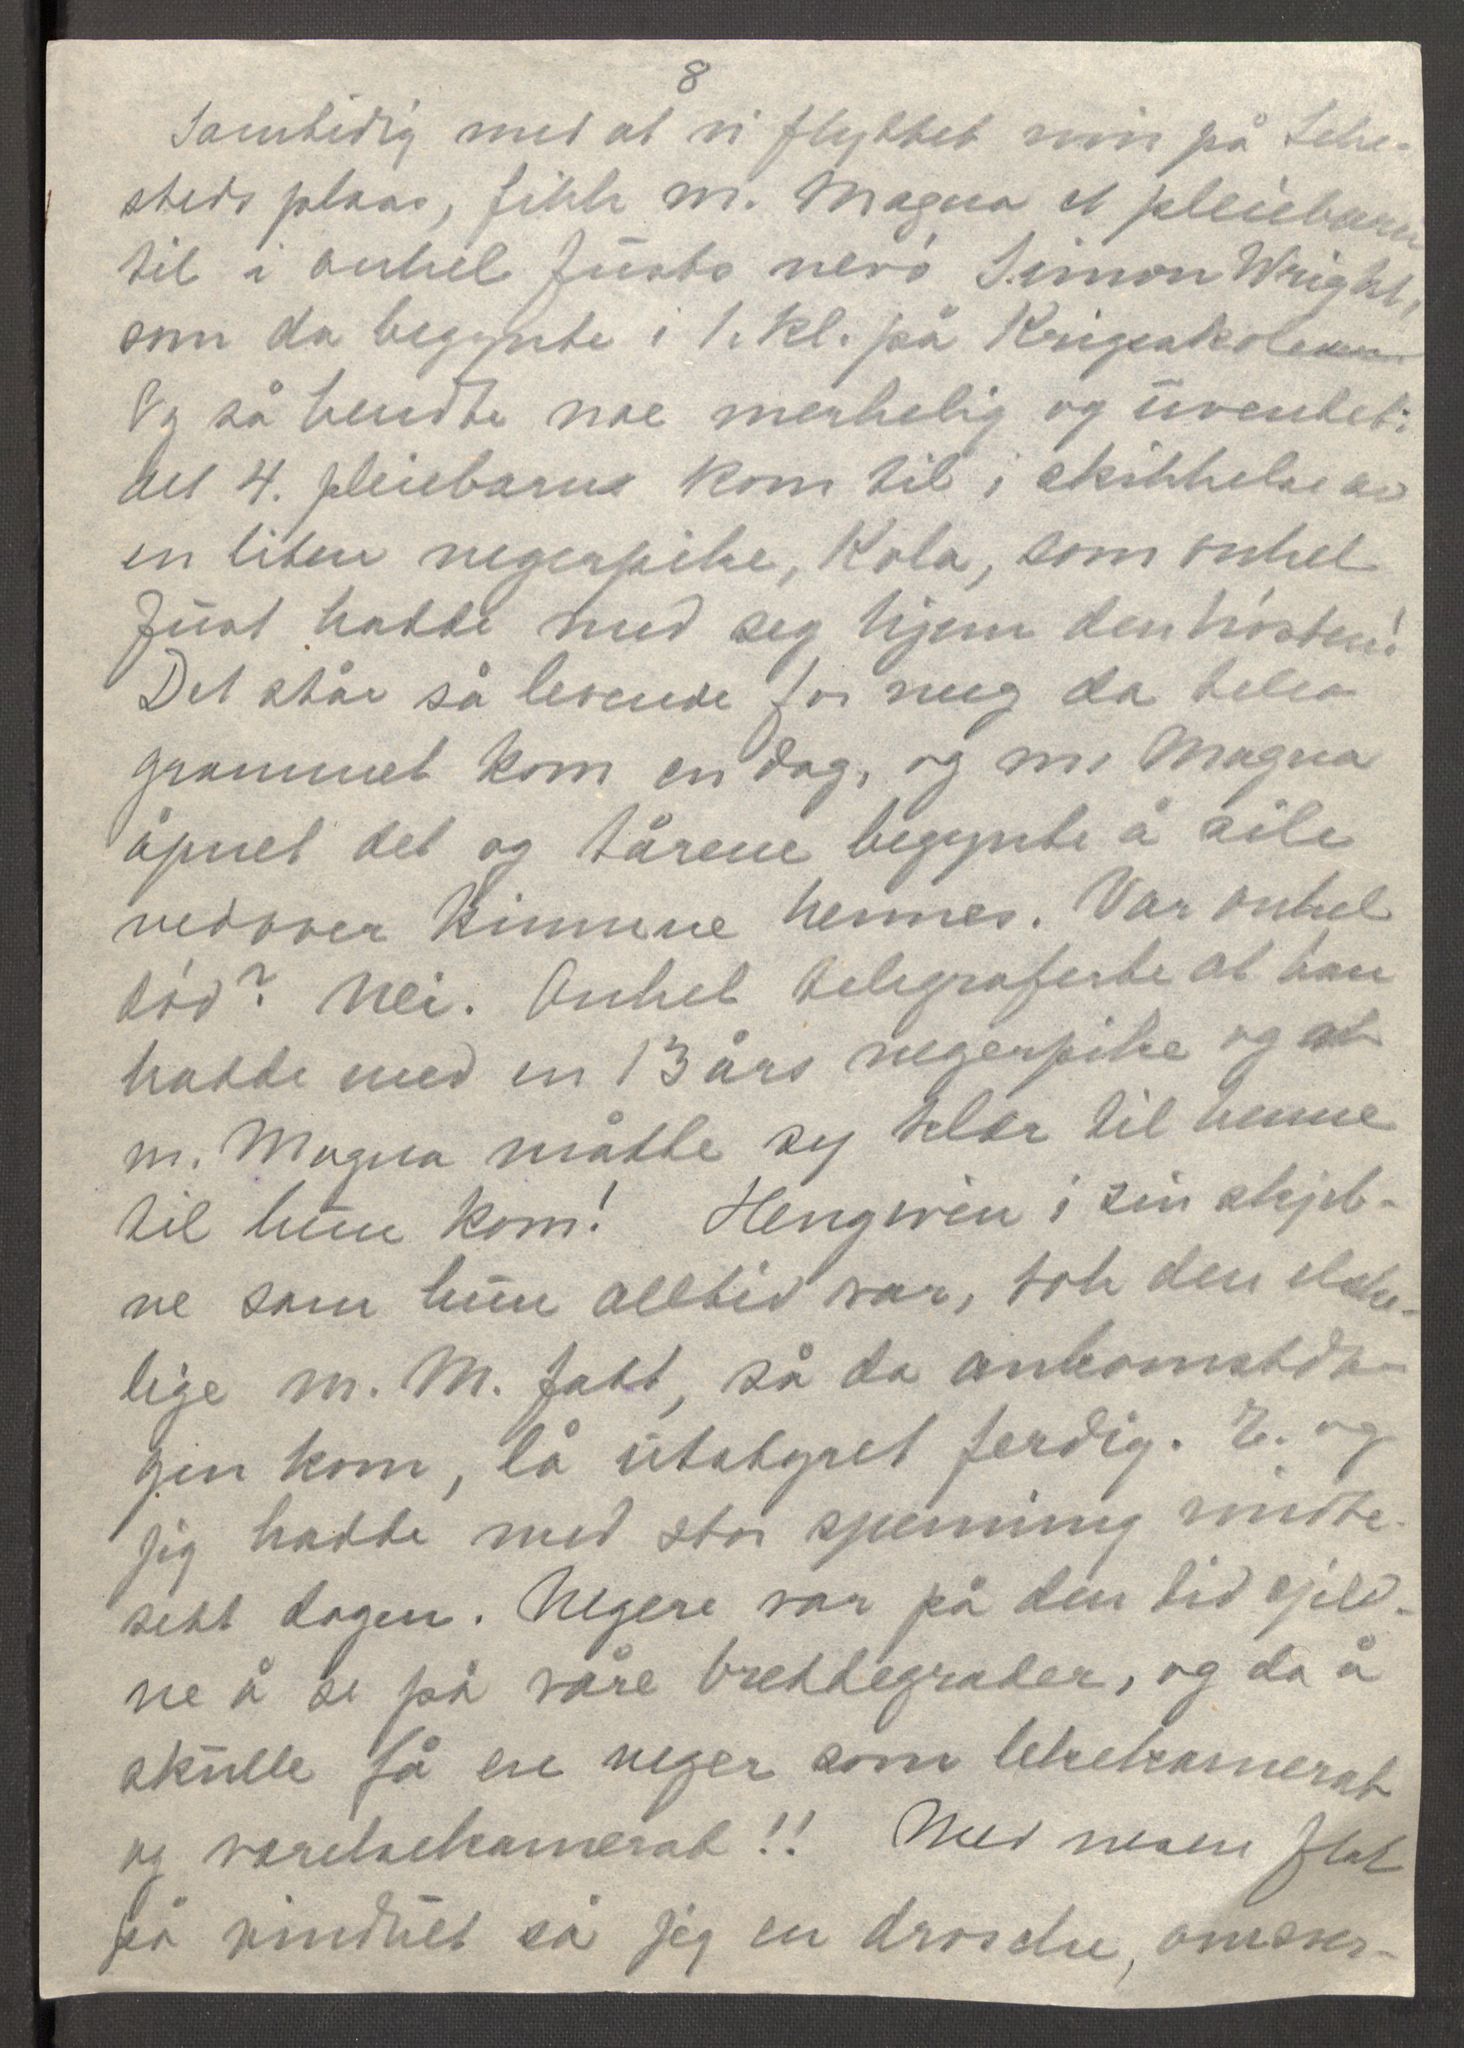 8
Samtidig med at vi flyttet inn på Sehe-
steds plass, fikk m. Magna et pleiebarn
til i onkel Justs nevø Simon Wright,
som da begynte i 1. kl. på Krigsskolen
Og så hendte noe merkelig og uventet:
det 4. pleiebarn kom til i skikkelse av
en liten negerpike, Kola, som onkel
Just hadde med seg hjem den høsten!
Det står så levende for meg da tele-
grammet kom en dag, og m. Magna
åpnet det og tårene begynte å sile
nedover kinnene hennes. Var onkel
død? Nei. Onkel telegraferte at han
hadde med en 13 års negerpike og at
m. Magna måtte sy klær til henne
til hun kom! Hengiven i sin skjeb-
ne som hun alltid var, tok den elske-
lige m. M. fatt, så da ankomstda-
gen kom, lå utstyret ferdig. E. og
jeg hadde med stor spenning imøte-
sett dagen. Negere var på den tid sjeld-
ne å se på våre breddegrader, og da å
skulle få en neger som lekekamerat
og værelsekamerat!! Med nesen flat
på vinduet så jeg en drosche, omsver-